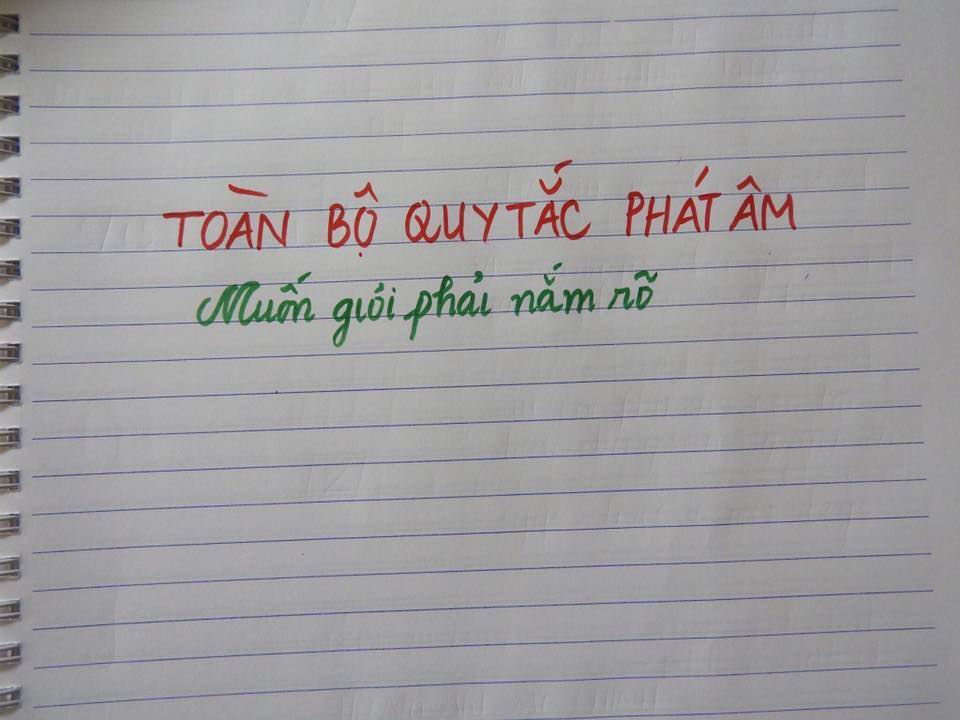 TOÀN BỘ QUY TẮC PHÁT ÂM
Muốn giỏi phải nắm rõ